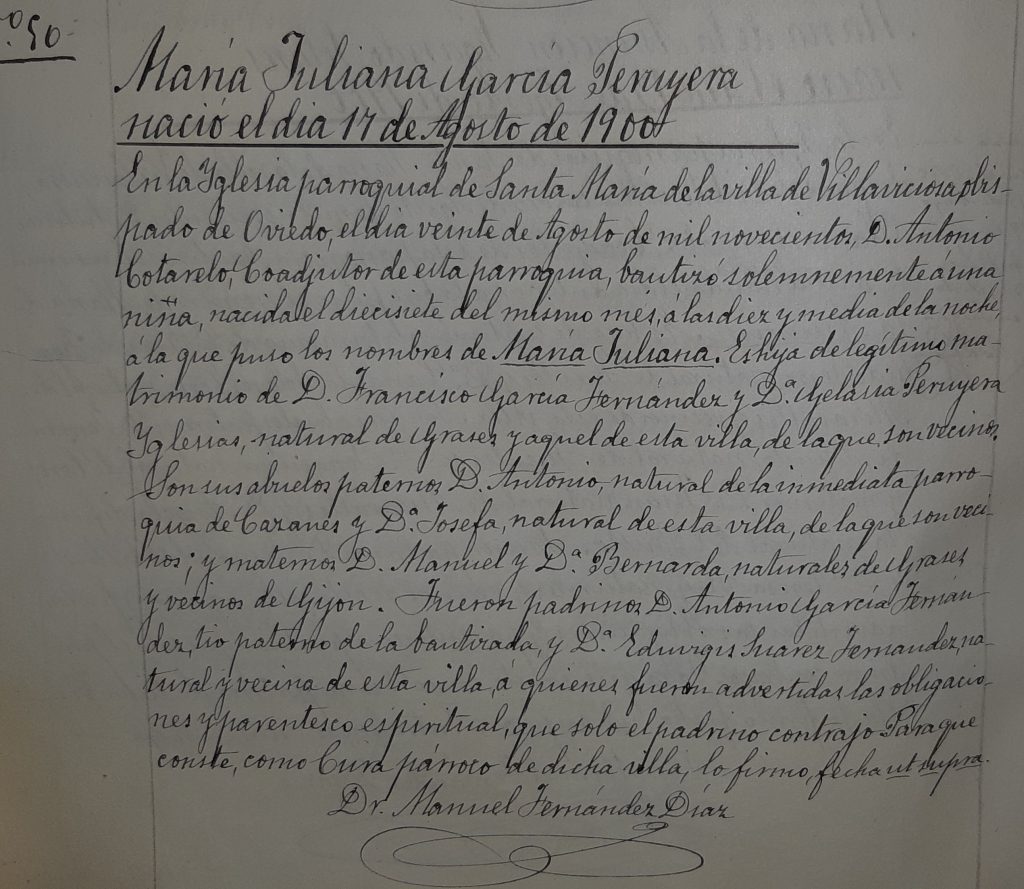 º 50
María Juliana García Peruyera
nació el dia 17 de Agosto de 1900
En la Yglesia parroquial de Santa María de la villa de Villaviciosa, obis-
pado de Oviedo, el dia veinte de Agosto de mil novecientos, D. Antonio
Cotarelo, Coadjutor de esta parroquia, bautizó solemnemente á una
niña, nacida el diecisiete del mismo mes, á las diez y media de la noche,
á la que puso los nombres de María Juliana. Es hija de legítimo ma-
trimonio de D. Francisco García Fernández y D.ª Gelasia Peruyera
Yglesias, natural de Grases y aquel de esta villa, de la que son vecinos.
Son sus abuelos paternos D. Antonio, natural de la inmediata parro-
quia de Cazanes y D.ª Josefa, natural de esta villa, de la que son veci-
nos; y maternos D. Manuel y D.ª Bernarda, naturales de Grases
y vecinos de Gijon. Fueron padrinos D. Antonio García Fernán-
dez, tio paterno de la bautizada, y D.ª Eduvigis Suarez Fernandez, na-
tural y vecina de esta villa, á quienes fueron advertidas las obligacio-
nes y parentesco espiritual, que solo el padrino contrajo Para que
conste, como Cura párroco de dicha villa, lo firmo, fecha ut supra.
Dr. Manuel Fernández Díaz